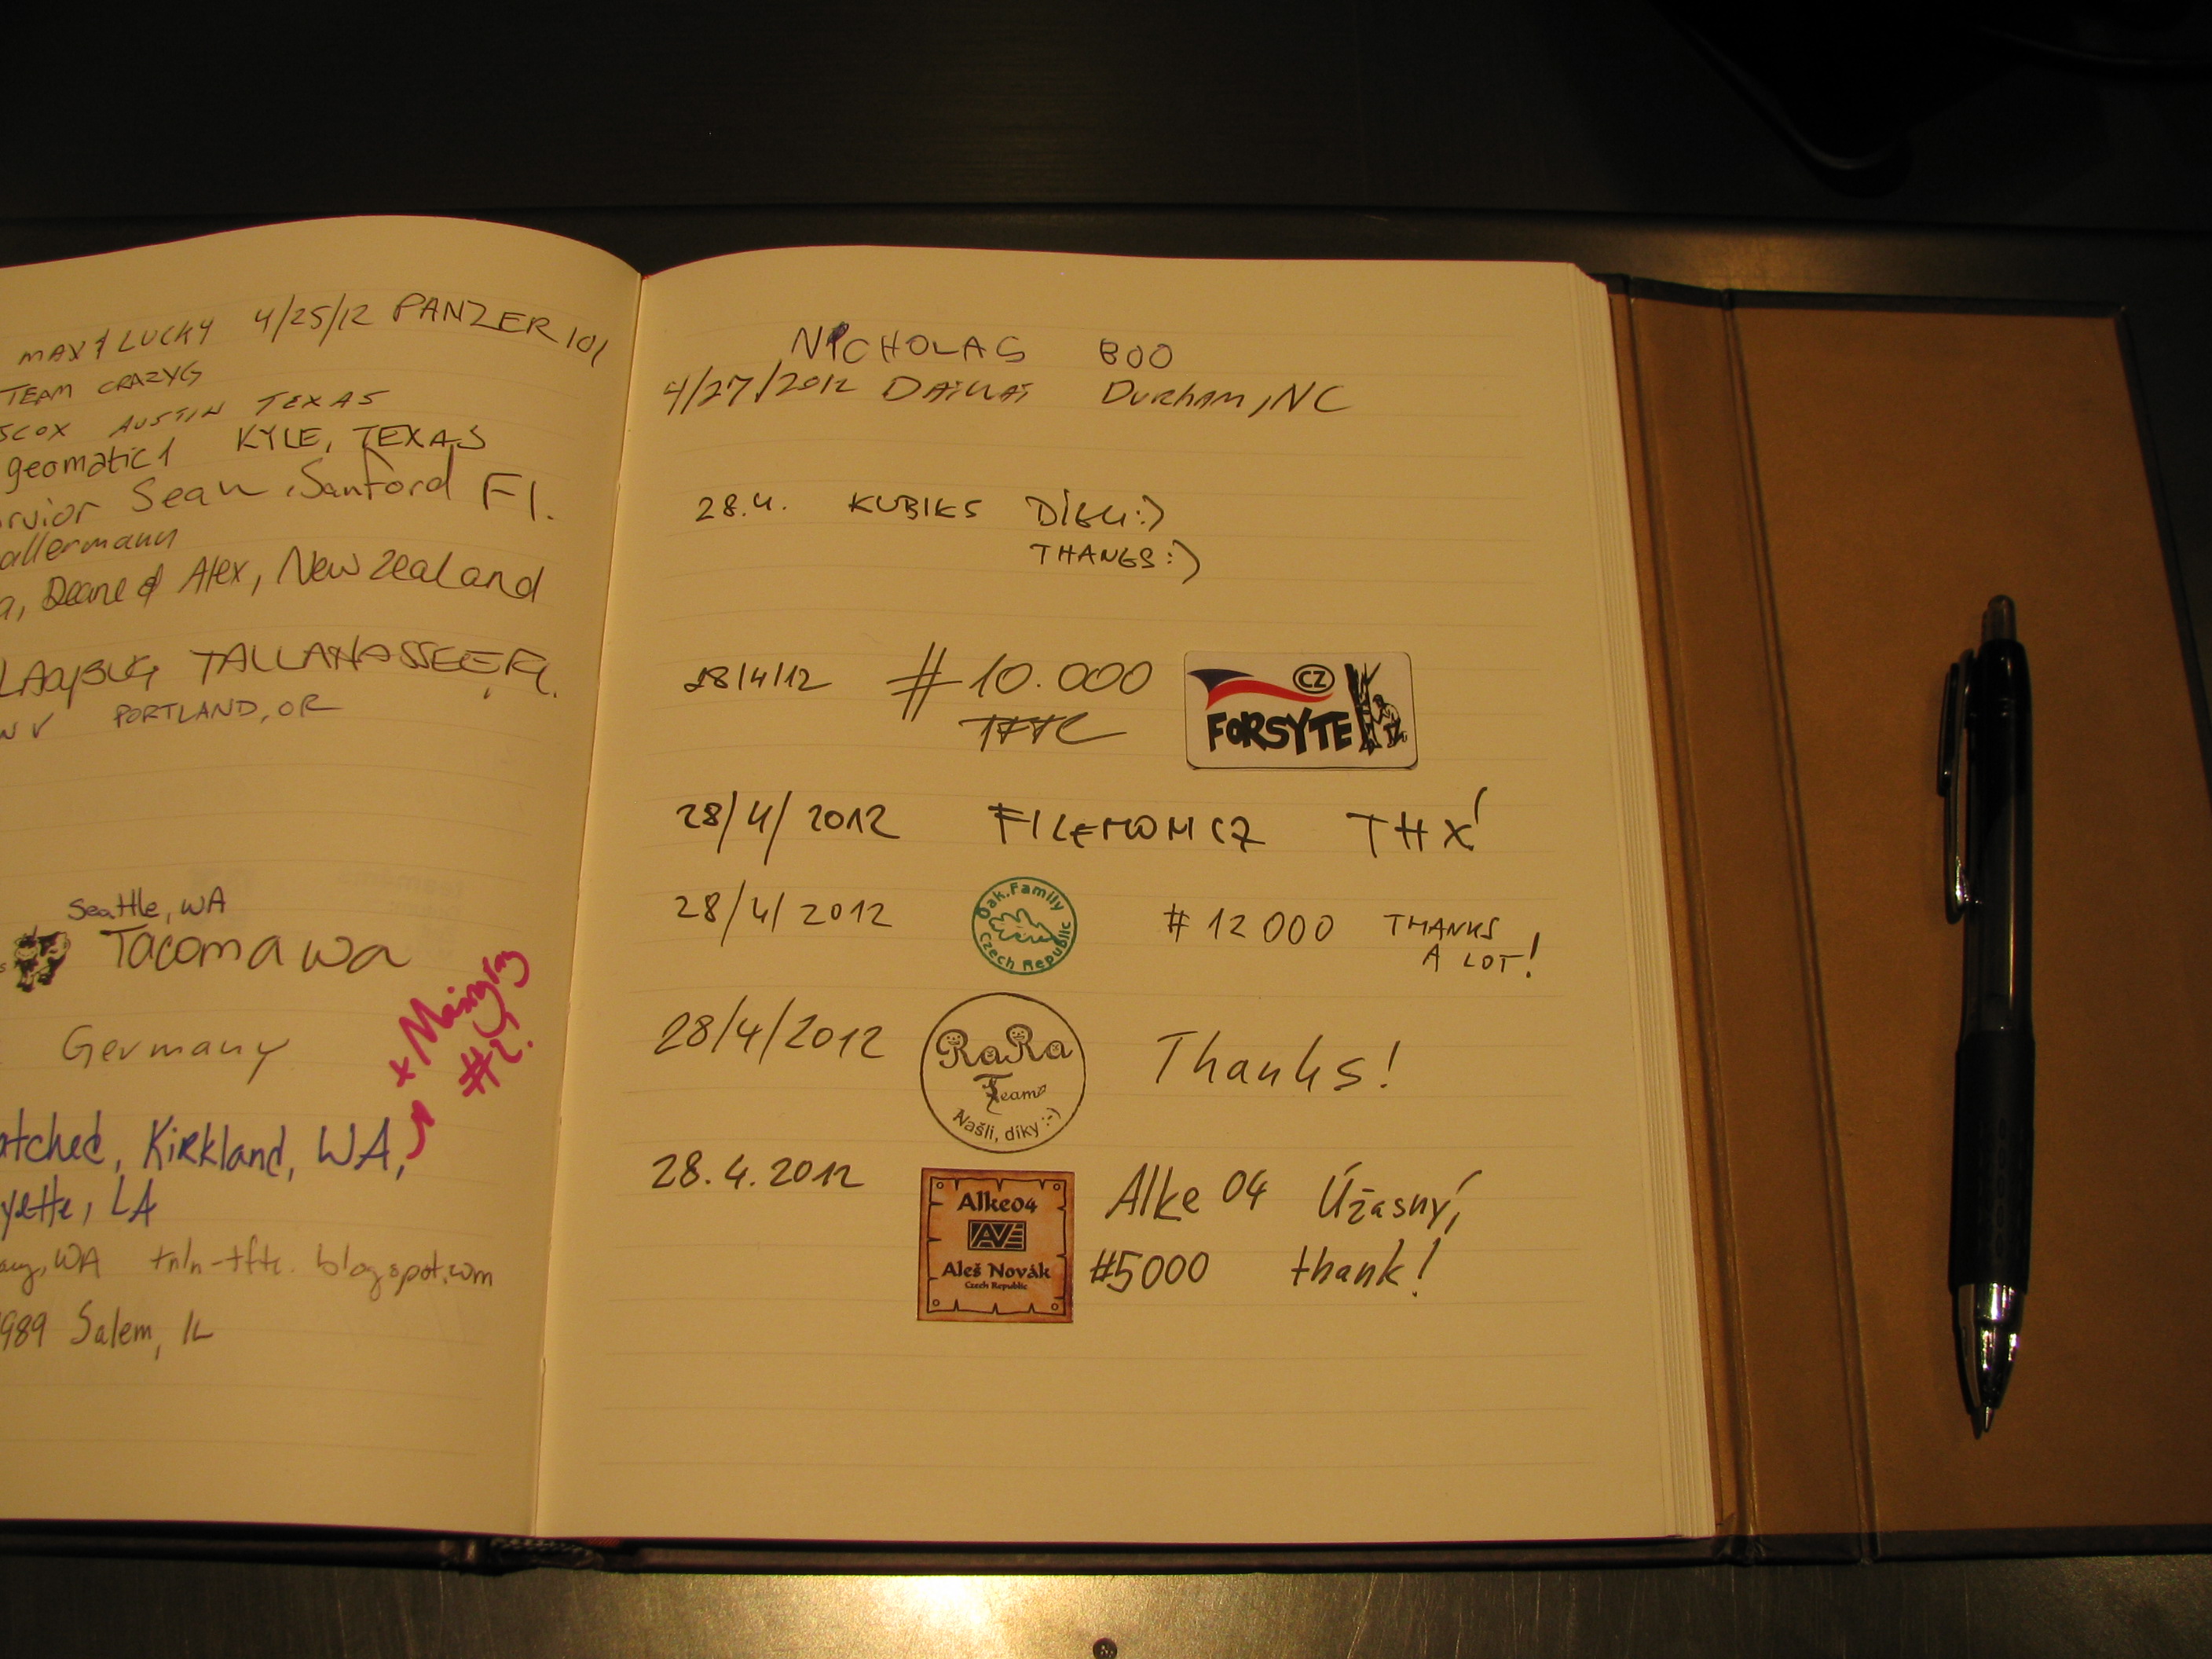 MAX & LUCKY 4/25/12 PANZER101
TEAM CRAZYG
SCOX AUSTIN TEXAS
geomatic1 KYLE, TEXAS
rvior Sean, Sanford Fl.
allermann
a, Deane & Alex, New Zealand
TALLAHASSEE, FL.
PORTLAND, OR
Seattle, WA
Tacoma wa
Germany
#2?
atched, Kirkland, WA,
yette, LA
WA tnln-tftc.blogspot.com
1989 Salem, IL
NICHOLAS BOO
4/27/2012 Durham, NC
28.4. KUBIKS DÍKY:)
THANGS:)
28/4/12 #10.000
TFTC
CZ
FORSYTE
28/4/2012 FILEMONCZ THX!
28/4/2012
Oak.Family
Czech Republic
#12000 THANKS
A LOT!
28/4/2012
RaRa
Team
Našli, díky :-)
Thanks!
28.4.2012
Alke04
AVE
Aleš Novák
Czech Republic
Alke 04 Úžasný,
#5000 thank!